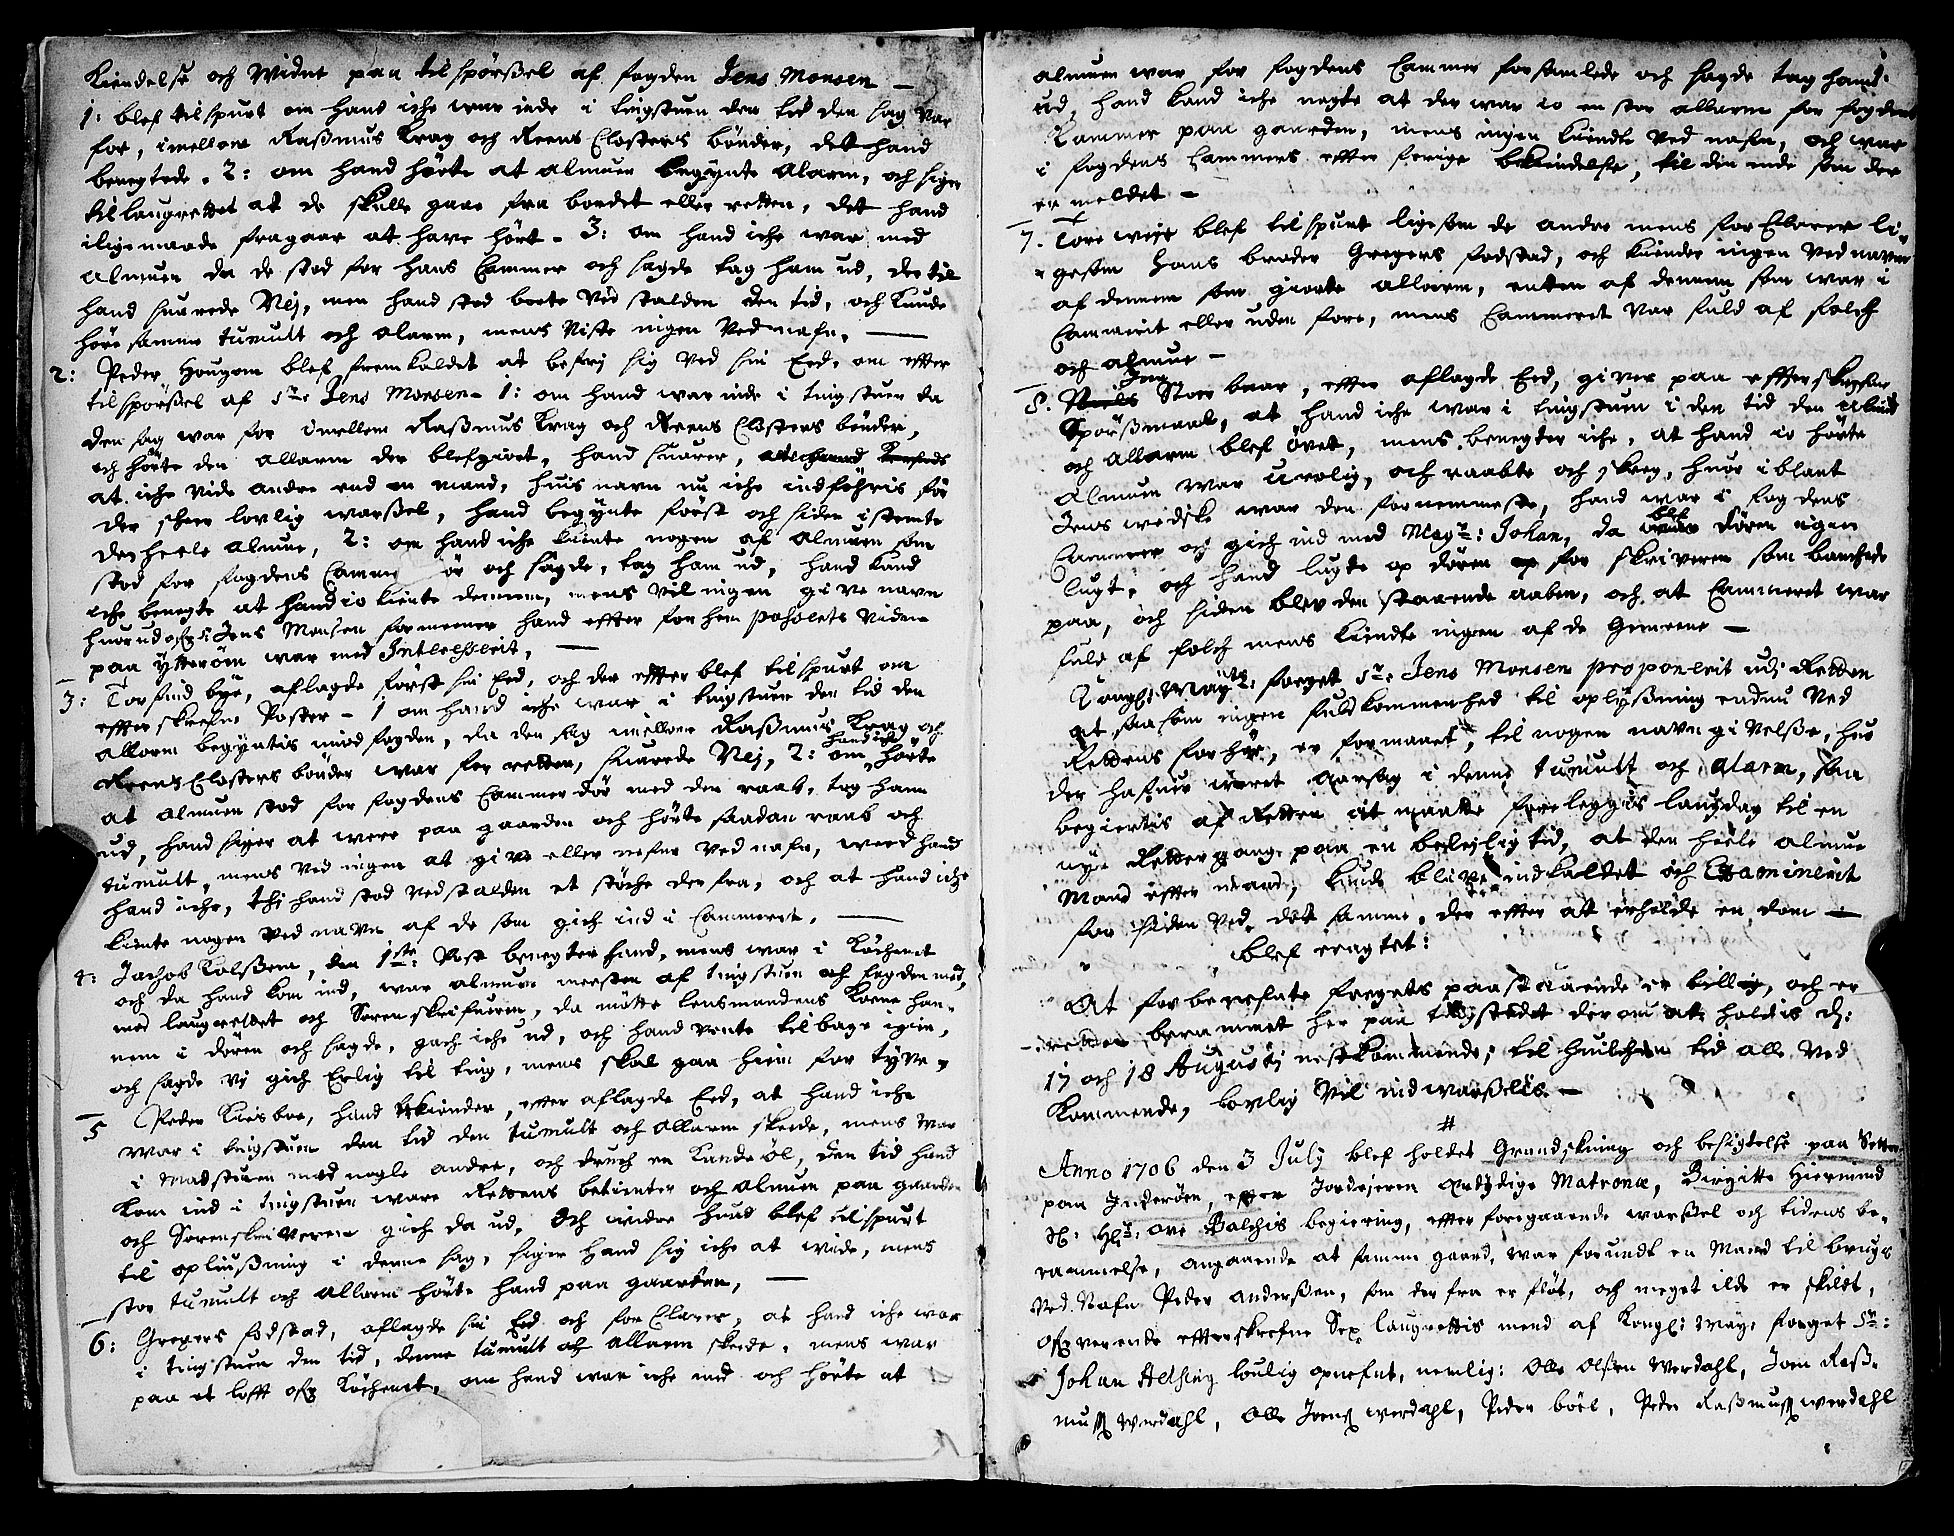 Kiendelse och Widne paa tilspørßel af fogden Jens Monsen —
1: blef tilspurt om hand iche war inde i tingstuen den tid den sag var
for, imellom Raßmus Krag och Reens Closters bønder, det hand
benegtede. 2: om hand hørte at almuen begynte Alarm, och siger
til laugrettet at de skulle gaae fra bordet eller retten, det hand
iligemaade fragaar at have hørt. 3: om hand iche war med
almuen da de stod for hans Cammer och sagde tag ham ud, der til
hand suarede Nej, men hand stod borte ved stalden den tid, och kunde
høre samme tumult och alarm, mens viste ingen ved nafn. —
2: Peder Hougom blef fremkaldet at befrj sig ved sin Eed, om effter
tilspørßel af Sr. Jens Monsen - 1: om hand war inde i tingstuen da
den sag war for imellem Raßmus Krag och Reens Closters bønder,
och hørte den allarm der blef giort, hand suarer,
at iche vide andre end en mand, huis navn nu iche indføhris før
der scheer lovlig warßel, hand begynte først och siden istemte
den heele almue, 2: om hand iche kiente nogen af almuen som
stod for fogdens Camme ør och sagde, tag ham ud, hand kand
iche benegte at hand io kiente dennem, mens vil ingen give navn
huorud ofr Sr Jens Monsen formeener hand effter forhen Passerets viden
paa ytterøen war med Interesserit, —
3: Torfind bye, aflagde først sin Eed, och der effter blef tilspurt om
effterskrefne Poster - 1 om hand iche war i tingstuen den tid den
allarm begyntis imod fogden, da den sag imellom Raßmus Krag och
Reens Closters bønder war for retten, suarede Nej, 2: om hand iche hørte
at almuen stod for fogdens Cammer dør med den raab, tag ham
ud, hand siger at were paa gaarden och hørte saadan raab och
tumult, mens ved ingen at give eller nefne ved nafn, weed hand
hand iche, thi hand stod ved stalden et støche derfra, och at hand iche
kiente nogen ved navn af de som gich ind i Cammeret. —
4: Jachob Kolßem, den 1ste Post benegter hand, mens war i Køchenet
och da hand kom ind, war almuen meesten af tingstuen och fogden med,
med laugrettet och Sorenskrifueren, da møtte lensmandens Kone han-
nem i døren och sagde, gach iche ud, och hand vente tilbage igien,
och sagde vj gich Erlig til ting, mens skal gaa hiem for tyve,
5 Peder Kiesboe, hand bekiender, effter aflagde Eed, at hand iche
war i tingstuen den tid den tumult och allarm skeede, mens war
i Madstuen med nogle andre, och druch en Kande øl, den tid hand
kom ind i tingstuen ware Rettens betienter och almuen paa gaarden
och Sorenskriveren gich da ud, Och videre hand blef tilspurt
til opliußning i denne sag, siger hand sig iche at vide, mens
stor tumult och allarm hørte hand paa gaarden, —
6: Gregers fodstad, aflagde sin Eed och forClarer, at hand iche war
i tingstuen den tid, denne tumult och allarm skeede, mens war
paa et lofft ofr Køchenet, om hand war iche med och hørte at
almuen war for fogdens Cammer forsamlede och sagde tag hand
ud, hand kand iche negte at der war io en stor allarm for fogdens
Kammer paa gaarden, mens ingen kiendte ved nafn, och war
i fogdens Cammers effter forige bekiendelse, til din ende som der
er meldet -
7. Tore wist blef tilspurt ligesom de andre mens forClarer li-
gesom hans broder Gregers fodstad, och kiender ingen ved navn
af dennem som giorte allarm, enten af dennem som war i
Cammerit eller uden fore, mens Cammeret var fuld af folch
och almue -
8. Jens Stoer baar, effter aflagde Eed, giver paa effterskrefne
Spørßmaal, at hand iche war i tingstuen i den tid den
och allarm blef øvet, mens benegter iche, at hand io hørte
Almuen war urolig, och raabte och skreg, huor iblant
Jens widske war den fornemmeste, hand war i fogdens
Cammer og gich ind med Mayr: Johan, da blef døren igien
lugt, och hand lugte op døren for skriveren som banchede
paa, och siden blev den staaende aaben, och at Cammeret war
fuld af folch mens kiendte ingen af de Gemeene —
Kongl: Maytz: foeget Sr. Jens Monsen proponerit udj Retten
at saasom ingen fuldkommenhed til oplysßning endnu ved
Rettens forhør, er formaaet, til nogen navn givelße, huo
der hafuer weret Aarsag i denne tumult och alarm, saa
begiertis af Retten at maatte foreleggis laugdag til en
nye Rettergang paa en beleylig tid, at den heele almue
Mand effter mand, kunde blive indkaldet och Examinerit
for siden ved det samme, der effter at erholde en dom —
blef eragtet:
At forbemeldte foegets paastaaende er billig, och er
retten berammet her paa tingstedet der om at holdis d:
17 och 18 Augustj nestkommende, til huilchen tid alle ved
kommende, lovlig vil indwarßelis. —
#
Anno 1706 den 3 Julj blef holdet Grandskning och besigtelse paa Setter
paa Inderøen, effter Jordejeren Erdydige Matrona, Birgitte Hiermind
Sl: Hl: Ove Balchis begiering, effter foregaaende warßel och tidens be-
rammelse, angaaende at samme gaard, war forundt en Mand til brugs
ved Nafn Peder Anderßen, som der fra er fløt, och meget ilde er skildt,
ofrverende effterskrefne Sex laugrettis mend af Kongl: May: foeget Sr:
Johan Helsing loulig opnefnt, nemlig: Olle Olsen Werdahl, Joen Raß-
muß werdahl, Olle Joensß werdahl, Peder bøel, Peder Raßmusß werdahl